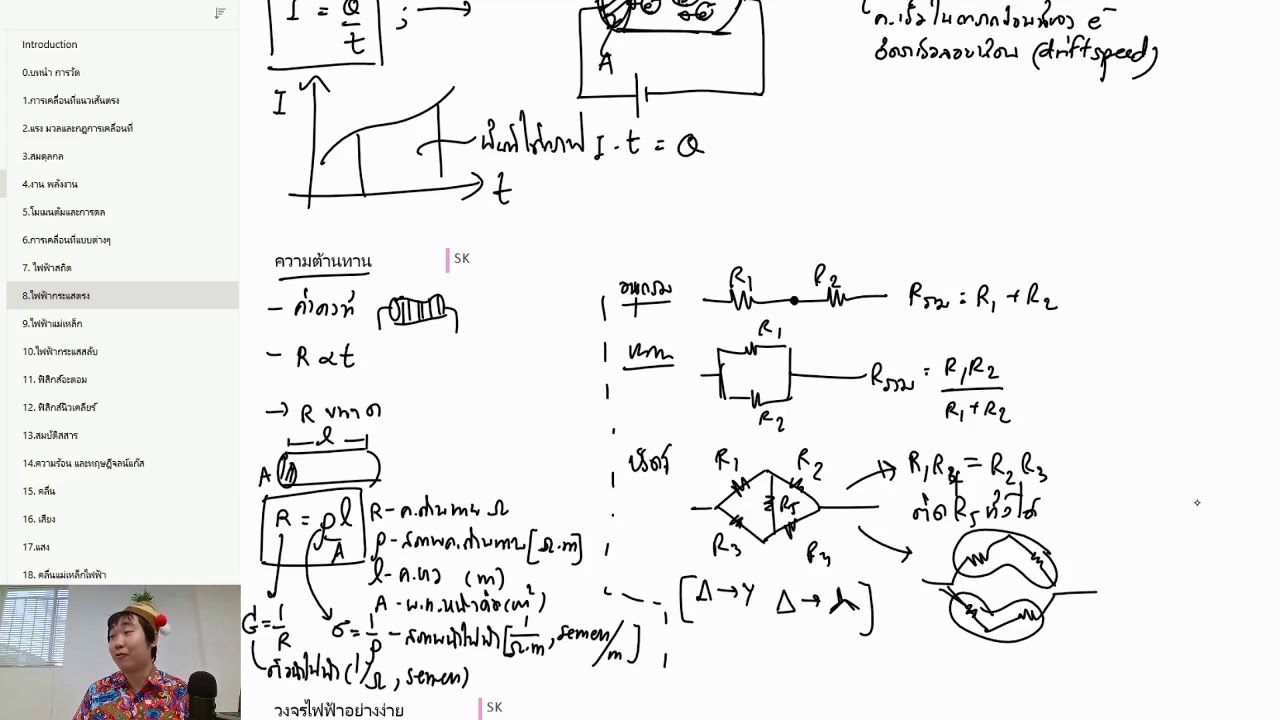 Introduction
0.บทนำ การวัด
1.การเคลื่อนที่แนวเส้นตรง
2.แรง มวลและกฎการเคลื่อนที่
3.สมดุลกล
4.งาน พลังงาน
5.โมเมนตัมและการดล
6.การเคลื่อนที่แบบต่างๆ
7. ไฟฟ้าสถิต
8.ไฟฟ้ากระแสตรง
9.ไฟฟ้าแม่เหล็ก
10.ไฟฟ้ากระแสสลับ
11. ฟิสิกส์อะตอม
12. ฟิสิกส์นิวเคลียร์
13.สมบัติสสาร
14.ความร้อน และทฤษฎีจลน์แก๊ส
15. คลื่น
16. เสียง
17.แสง
18. คลื่นแม่เหล็กไฟฟ้า
I = Q/t ;
A
e⁻
(drift speed)
I
t
พื้นที่ใต้กราฟ I · t = Q
ความต้านทาน
SK
- ค่าคงที่
- R ∝ t
→ R ขนาด
l
A
R = ρl/A
R - ค.ต้านทาน Ω
ρ - สภาพค.ต้านทาน [Ω.m]
l - ค.ยาว (m)
A - พ.ท.หน้าตัด (m²)
G = 1/R
σ = 1/ρ - สภาพนำไฟฟ้า [1/Ω.m, semen/m]
ตัวนำไฟฟ้า (1/Ω, semen)
อนุกรม
R₁ R₂
Rรวม = R₁ + R₂
ขนาน
R₁
R₂
Rรวม = R₁R₂/R₁+R₂
บริดจ์
R₁ R₂
R₅
R₃ R₄
R₁R₄ = R₂R₃
ตัด R₅ ทิ้งได้
[Δ → Y Δ → ⅄]
วงจรไฟฟ้าอย่างง่าย
SK